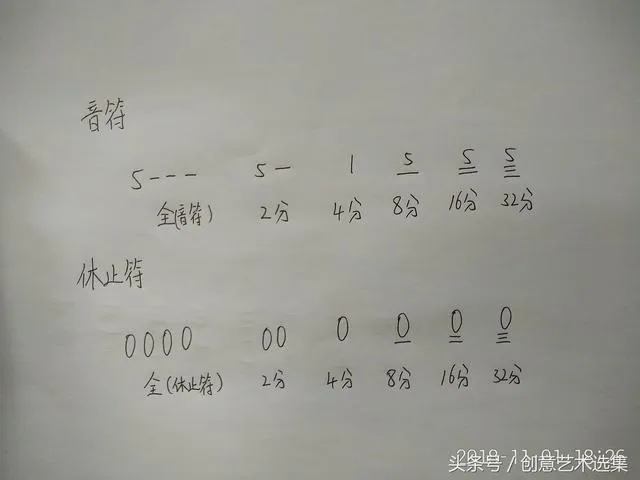 音符
5--- 5- 1 5 5 5
全(音符) 2分 4分 8分 16分 32分
休止符
0000 00 0 0 0 0
全(休止符) 2分 4分 8分 16分 32分
2019-11-01 18:26
头条号/创意艺术选集